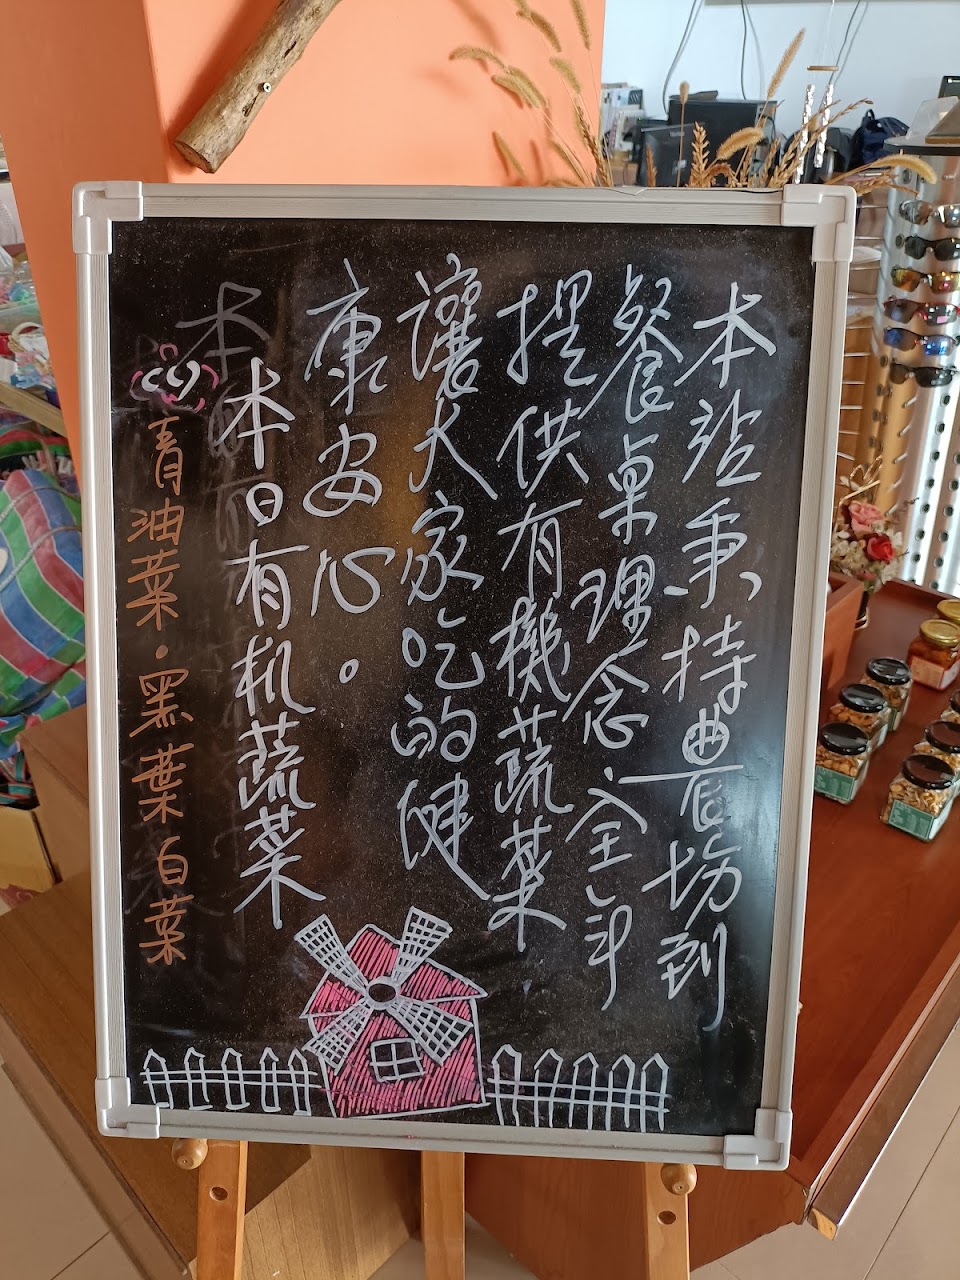 本站秉持農場到
餐桌理念、全年
提供有機蔬菜
讓大家吃的健
康安心。
本日有机蔬菜
青油菜.黑葉白菜